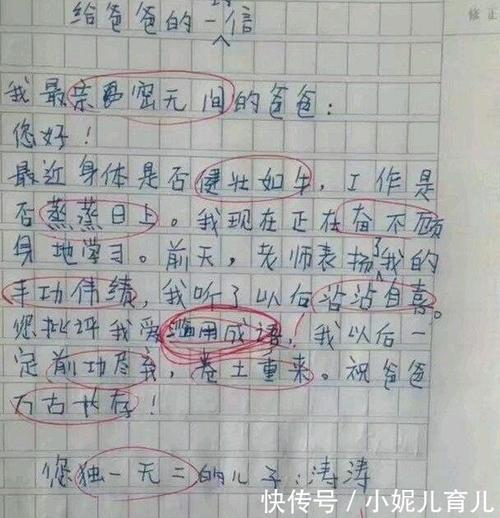 给爸爸的一封信
修正
我最亲密无间的爸爸:
您好!
最近身体是否健壮如牛,工作是
否蒸蒸日上。我现在正在奋不顾
身地学习。前天,老师表扬了我的
丰功伟绩,我听了以后沾沾自喜。
您批评我爱滥用成语,我以后一
定前功尽弃,卷土重来。祝爸爸
万古长存!
您独一无二的儿子:涛涛
快传号/小妮儿育儿